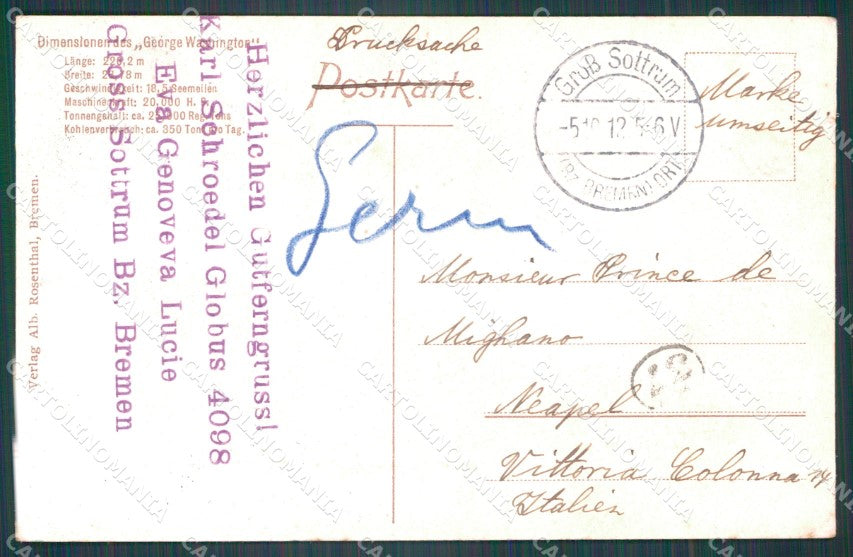 Dimensionen des „George Washington"
Länge: 220,2 m
Breite: 23,8 m
Geschwindigkeit: 18,5 Seemeilen
Maschinenkraft: 20,000 H.
Tonnengehalt: ca. Reg. Tons
Kohlenverbrauch: ca. 350 Tons pro Tag.
Drucksache
Postkarte.
Groß Sottrum
-5 12 5-6 V
(Bz. BREMEN) ORT
Marke
umseitig
Herzlichen Gutferngruss!
Karl Schroedel Globus 4098
Eva Genoveva Lucie
Gross Sottrum Bz. Bremen
Verlag Alb. Rosenthal, Bremen.
Monsieur Prince de
Mighano
Neapel
Vittoria Colonna 14
Italien
CARTOLINOMANIA